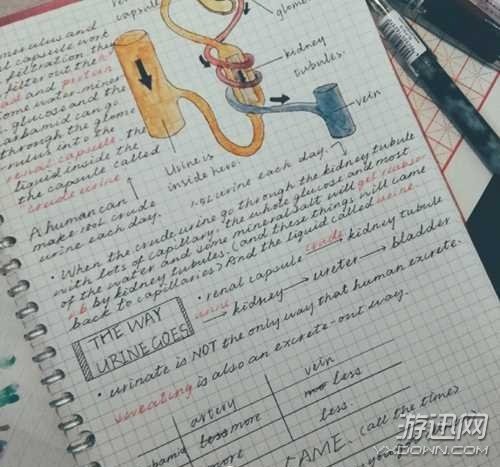 capsule
glome
kidney
tubules.
vein
Urine is
inside here.
merulus and
capsule work
filtration, they
filter out the
and protein
some water, miner
glucose and the
carbamid can go
through the glome
rulus into the
renal capsule. the
liquid inside the
the capsule called
crude urine
A human can
make 180L crude
urine each day.
1.5L urine each day.
· When the crude urine go through the kidney tubule
with lots of capillary. the whole glucose and most
of the water and some mineral salt will get reabsor
b by kidney tubules. (and these things will came
back to capillaries) And the liquid called urine.
THE WAY
URINE GOES
· renal capsule crude kidney tubule
urine kidney → ureter → bladder
· urinate is NOT the only way that human excrete.
sweating is also an excrete-out way.
artery vein
less more less
more less.
(all the time)
游迅网
YXDOWN.COM